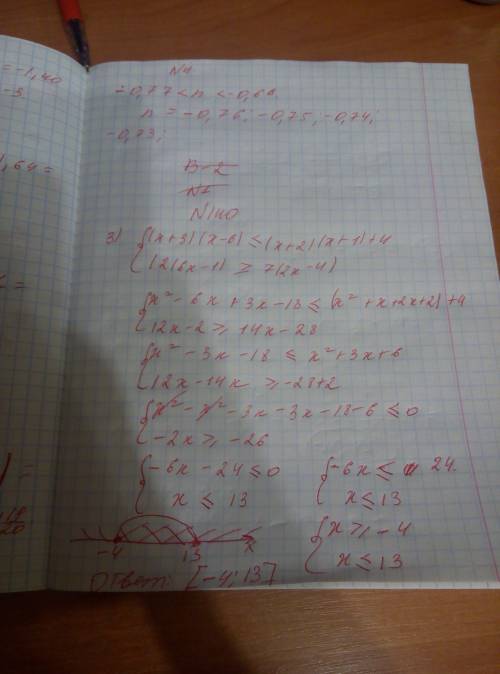 = -1,40
-3
,64 =
=
=
N4
-0,77 < n < -0,66
n = -0,76; -0,75; -0,74;
-0,73;
В-2
N1
N140
3) {(x+3)(x-6) ≤ (x+2)(x+1)+4
{2(6x-1) ≥ 7(2x-4)
{x² - 6x + 3x - 18 ≤ (x² + x + 2x + 2) + 4
{12x - 2 ≥ 14x - 28
{x² - 3x - 18 ≤ x² + 3x + 6
{12x - 14x ≥ -28 + 2
{x² - x² - 3x - 3x - 18 - 6 ≤ 0
{-2x ≥ -26
{-6x - 24 ≤ 0 {-6x ≤ 24.
{x ≤ 13 {x ≤ 13
{x ≥ -4
{x ≤ 13
-4 13 x
Ответ: [-4; 13]